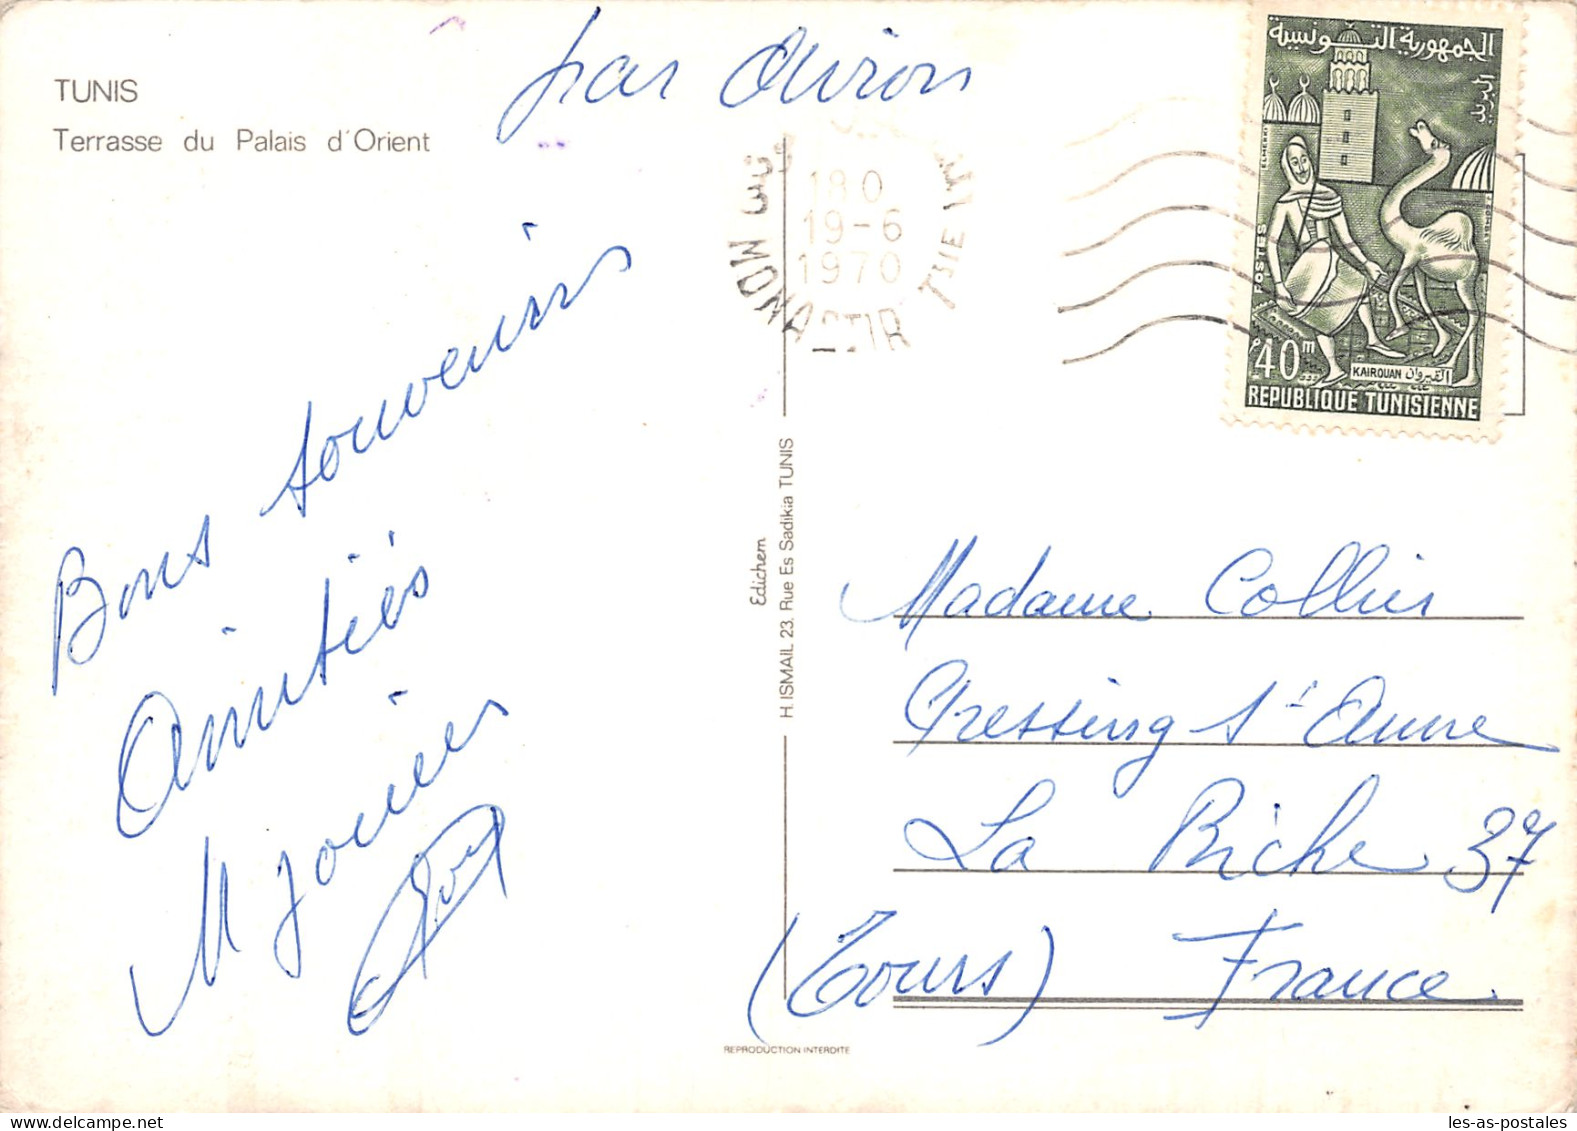 TUNIS
Terrasse du Palais d'Orient
par avion
Bons souvenirs
Amitiés
M
الجمهورية التونسية
البريد
ELMEKKI
POSTES
40m
KAIROUAN القيروان
REPUBLIQUE TUNISIENNE
180
19-6
1970
MONASTIR
Edichem
H. ISMAIL 23, Rue Es Sadikia TUNIS
Madame Collier
Pressing Ste Anne
La Riche 37
(Tours) France
REPRODUCTION INTERDITE
les-as-postales